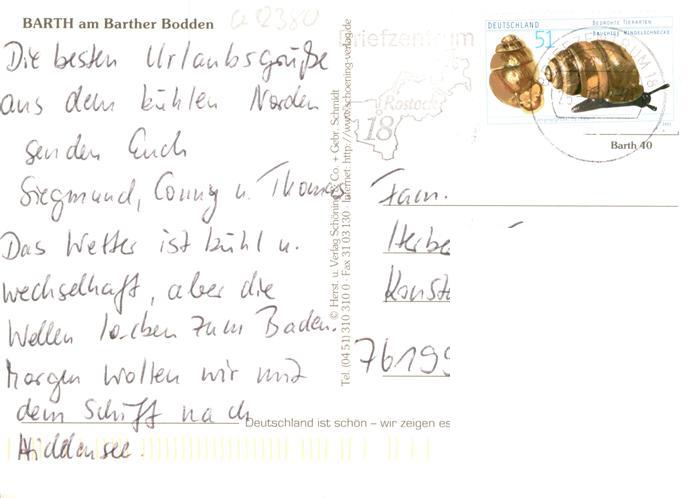 BARTH am Barther Bodden
a 2380
Die besten Urlaubsgrüße
aus dem kühlen Norden
senden Euch
Siegmund, Conny u. Thomas
Das Wetter ist kühl u.
wechselhaft, aber die
Wellen locken zum Baden.
Morgen wollen wir mit
dem Schiff nach
Hiddensee.
© Herst. u. Verlag Schöning & Co. + Gebr. Schmidt
Tel. (04 51) 310 310 0 · Fax 31 03 130 · Internet: http://www.schoening-verlag.de
Briefzentrum
Rostock
18
DEUTSCHLAND
51
BEDROHTE TIERARTEN
BAUCHIGE WINDELSCHNECKE
BRIEFZENTRUM 18
Barth 40
Fam.
Herbe
Konsta
76199
Deutschland ist schön – wir zeigen es